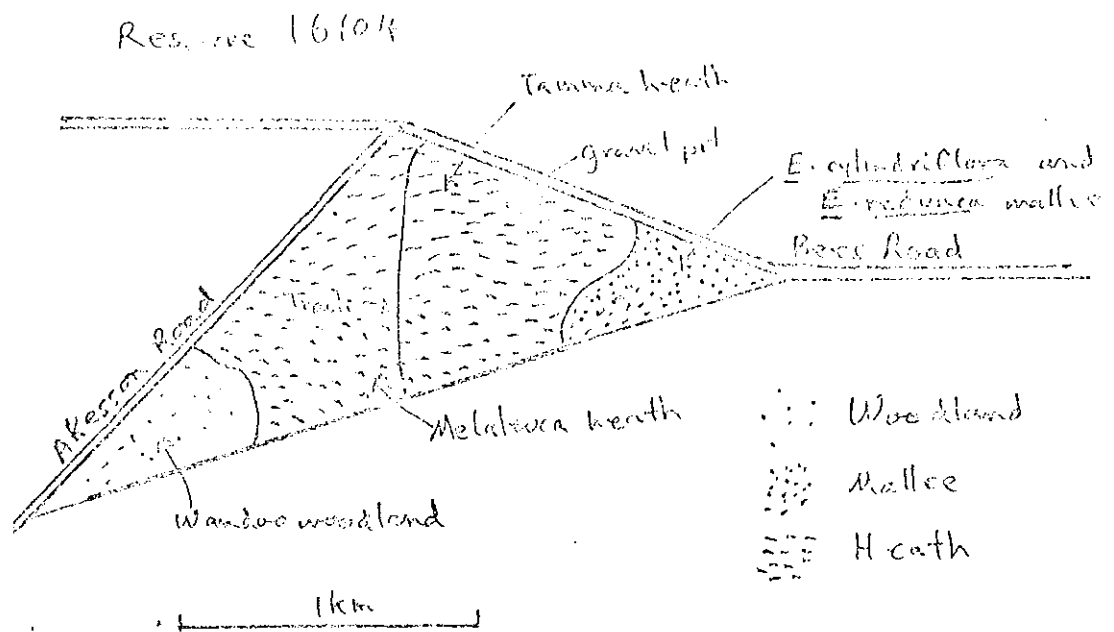 Reserve 16104
Tamma heath
gravel pit
E. cylindriflora and
E. redunca mallee
Bees Road
Akesson Road
Track
Melaleuca heath
Wandoo woodland
Woodland
Mallee
Heath
1km